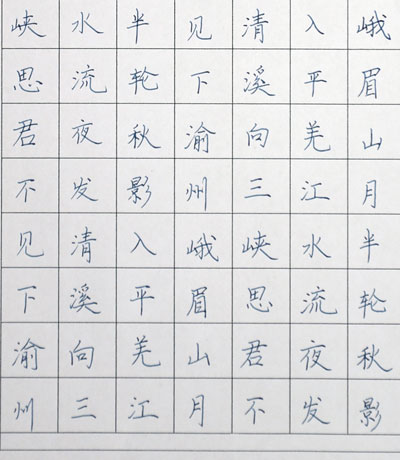 峨眉山月半轮秋影
入平羌江水流夜发
清溪向三峡思君不
见下渝州峨眉山月
半轮秋影入平羌江
水流夜发清溪向三
峡思君不见下渝州